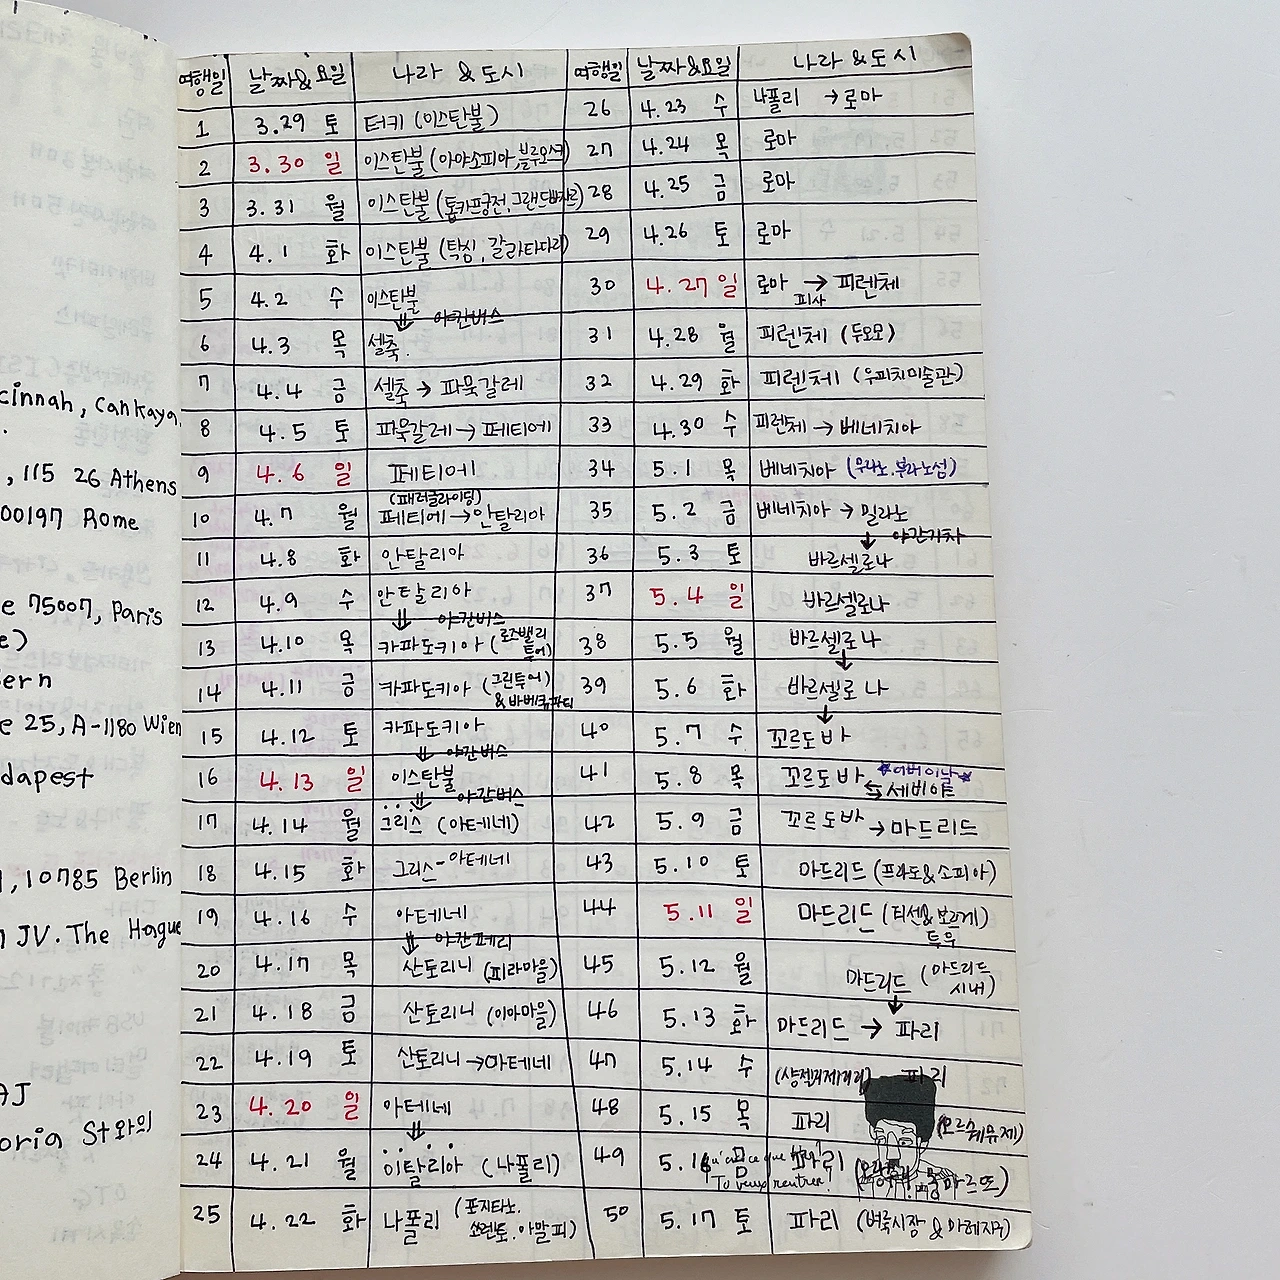 여행일 날짜&요일 나라 & 도시
1 3.29 토 터키 (이스탄불)
2 3.30 일 이스탄불 (아야소피아, 블루모스크)
3 3.31 월 이스탄불 (톱카프궁전, 그랜드바자르)
4 4.1 화 이스탄불 (탁심, 갈라타다리)
5 4.2 수 이스탄불
⇓ 야간버스
6 4.3 목 셀축.
7 4.4 금 셀축 → 파묵갈레
8 4.5 토 파묵갈레 → 페티예
9 4.6 일 페티예
(패러글라이딩)
10 4.7 월 페티예 → 안탈리아
11 4.8 화 안탈리아
12 4.9 수 안탈리아
⇓ 야간버스
13 4.10 목 카파도키아 (로즈밸리 투어)
14 4.11 금 카파도키아 (그린투어)
& 바베큐파티
15 4.12 토 카파도키아
⇓ 야간버스
16 4.13 일 이스탄불
⇓ 야간버스
17 4.14 월 그리스 (아테네)
18 4.15 화 그리스-아테네
19 4.16 수 아테네
⇓ 야간페리
20 4.17 목 산토리니 (피라마을)
21 4.18 금 산토리니 (이아마을)
22 4.19 토 산토리니 → 아테네
23 4.20 일 아테네
⇓
24 4.21 월 이탈리아 (나폴리)
25 4.22 화 나폴리 (포지타노. 쏘렌토. 아말피)
여행일 날짜&요일 나라 & 도시
26 4.23 수 나폴리 → 로마
27 4.24 목 로마
28 4.25 금 로마
29 4.26 토 로마
30 4.27 일 로마 → 피렌체
피사
31 4.28 월 피렌체 (두오모)
32 4.29 화 피렌체 (우피치미술관)
33 4.30 수 피렌체 → 베네치아
34 5.1 목 베네치아 (무라노.부라노섬)
35 5.2 금 베네치아 → 밀라노
↓ 야간기차
36 5.3 토 바르셀로나
37 5.4 일 바르셀로나
38 5.5 월 바르셀로나
↓
39 5.6 화 바르셀로나
↓
40 5.7 수 꼬르도바
41 5.8 목 꼬르도바 *어버이날*
⇆ 세비야
42 5.9 금 꼬르도바 → 마드리드
43 5.10 토 마드리드 (프라도&소피아)
44 5.11 일 마드리드 (티센&보르게)
투우
45 5.12 월 마드리드 (마드리드 시내)
↓
46 5.13 화 마드리드 → 파리
47 5.14 수 파리
48 5.15 목 파리
49 5.16 금 파리
Tu veux rentrer?
50 5.17 토 파리 (벼룩시장 &
cinnah, Cankaya
, 115 26 Athens
00197 Rome
e 75007, Paris
e)
ern
e 25, A-1180 Wien
dapest
, 10785 Berlin
JV. The Hague
AJ
oria St와의